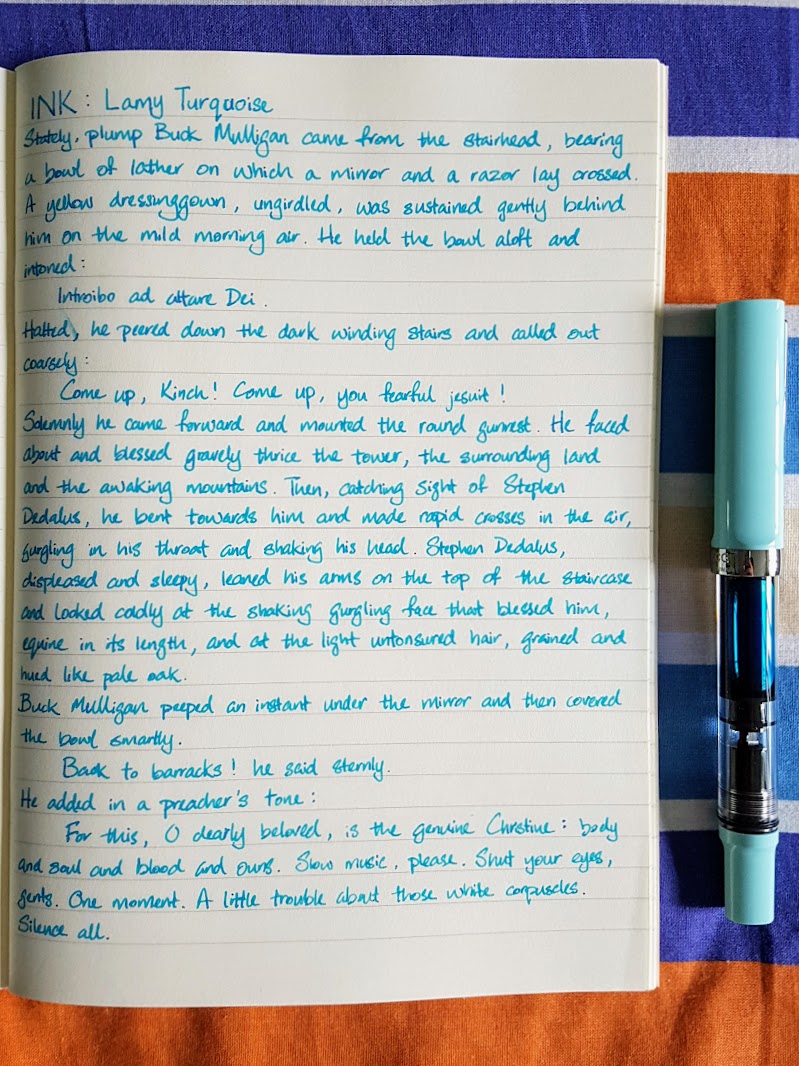 INK: Lamy Turquoise
Stately, plump Buck Mulligan came from the stairhead, bearing
a bowl of lather on which a mirror and a razor lay crossed.
A yellow dressinggown, ungirdled, was sustained gently behind
him on the mild morning air. He held the bowl aloft and
intoned:
Introibo ad altare Dei.
Halted, he peered down the dark winding stairs and called out
coarsely:
Come up, Kinch! Come up, you fearful jesuit!
Solemnly he came forward and mounted the round gunrest. He faced
about and blessed gravely thrice the tower, the surrounding land
and the awaking mountains. Then, catching sight of Stephen
Dedalus, he bent towards him and made rapid crosses in the air,
gurgling in his throat and shaking his head. Stephen Dedalus,
displeased and sleepy, leaned his arms on the top of the staircase
and looked coldly at the shaking gurgling face that blessed him,
equine in its length, and at the light untonsured hair, grained and
hued like pale oak.
Buck Mulligan peeped an instant under the mirror and then covered
the bowl smartly.
Back to barracks! he said sternly.
He added in a preacher's tone:
For this, O dearly beloved, is the genuine Christine: body
and soul and blood and ouns. Slow music, please. Shut your eyes,
gents. One moment. A little trouble about those white corpuscles.
Silence all.